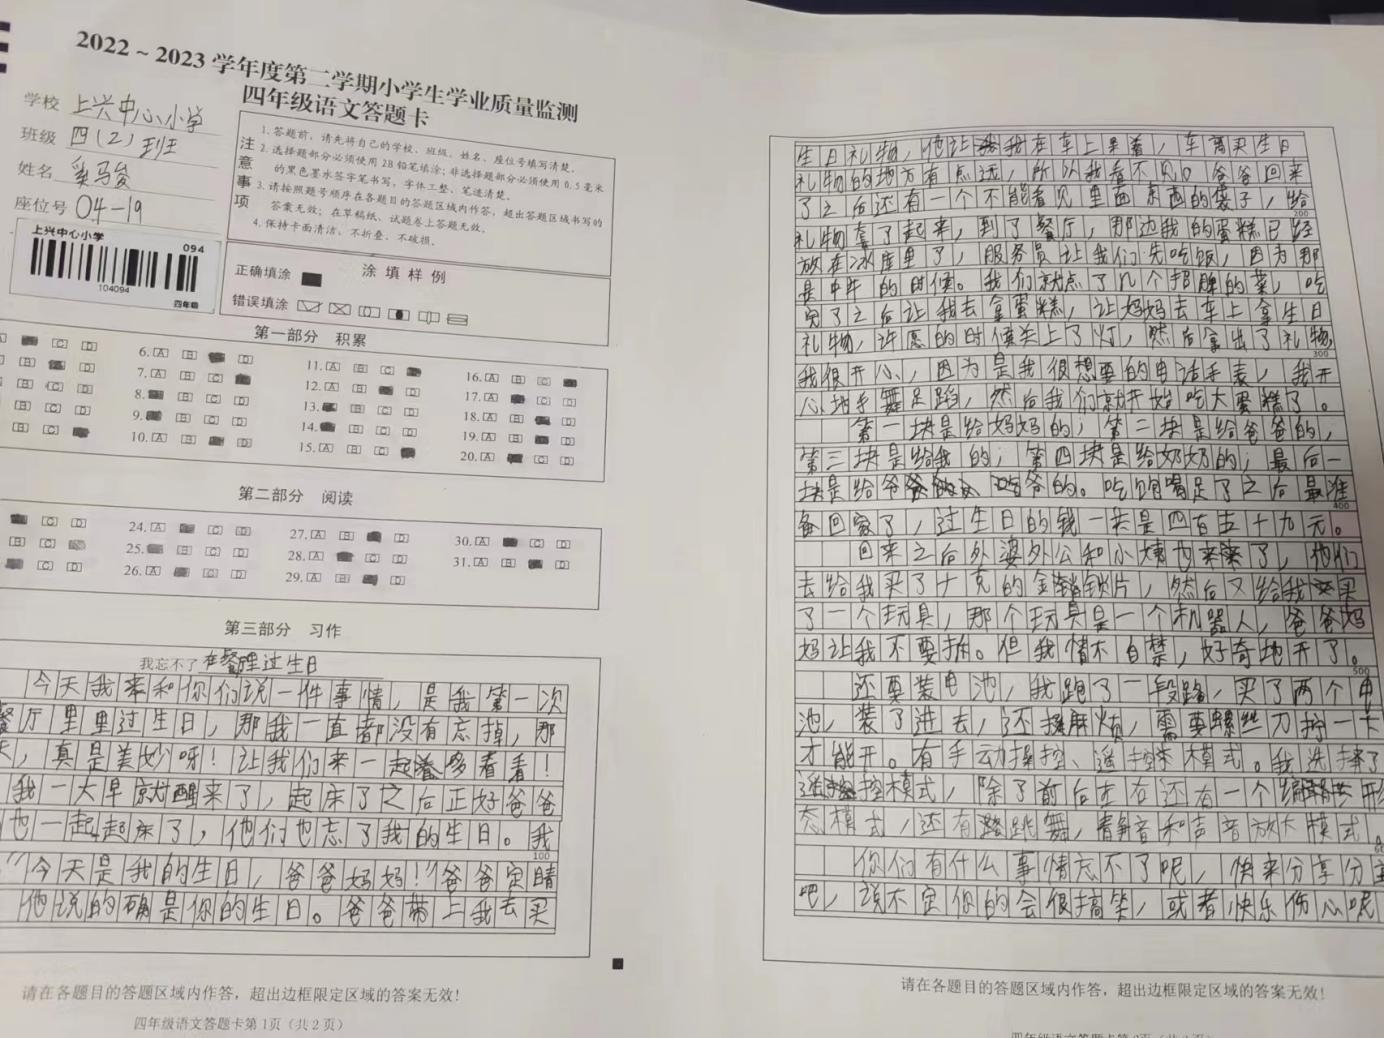 2022~2023学年度第二学期小学生学业质量监测
四年级语文答题卡
学校 上兴中心小学
班级 四(2)班
姓名 奚马俊
座位号 04-19
上兴中心小学
094
104094
四年级
注意事项
1.答题前，请先将自己的学校、班级、姓名、座位号填写清楚。
2.选择题部分必须使用2B铅笔填涂;非选择题部分必须使用0.5毫米
的黑色墨水签字笔书写，字体工整、笔迹清楚。
3.请按照题号顺序在各题目的答题区域内作答，超出答题区域书写的
答案无效；在草稿纸、试题卷上答题无效。
4.保持卡面清洁、不折叠、不破损。
涂填样例
正确填涂
错误填涂
第一部分 积累
6. 11. 16.
7. 12. 17.
8. 13. 18.
9. 14. 19.
10. 15. 20.
第二部分 阅读
24. 27. 30.
25. 28. 31.
26. 29.
第三部分 习作
我忘不了在餐厅里过生日
今天我来和你们说一件事情，是我第一次
餐厅里里过生日，那我一直都没有忘掉，那
天，真是美妙呀！让我们来一起看看！
我一大早就醒来了，起床了之后正好爸爸
也一起起床了，他们也忘了我的生日。我
“今天是我的生日，爸爸妈妈！”爸爸定睛
他说的确是你的生日。爸爸带上我去买
100
生日礼物，他让我在车上呆着，车离买生日
礼物的地方有点远，所以我看不见。爸爸回来
了之后还有一个不能看见里面东西的袋子，给
200
礼物拿了起来，到了餐厅，那边我的蛋糕已经
放在冰库里了，服务员让我们先吃饭，因为那
是中午的时候。我们就点了几个招牌的菜，吃
完了之后让我去拿蛋糕，让妈妈去车上拿生日
礼物，许愿的时候关上了灯，然后拿出了礼物
300
我很开心，因为是我很想要的电话手表，我开
心地手舞足蹈，然后我们就开始吃大蛋糕了。
第一块是给妈妈的；第二块是给爸爸的，
第三块是给我的；第四块是给奶奶的；最后一
块是给爷爷的。吃饱喝足了之后最准
400
备回家了，过生日的钱一共是四百五十九元。
回来之后外婆外公和小姨也来了，他们
去给我买了十克的金锁片，然后又给我买
了一个玩具，那个玩具是一个机器人，爸爸妈
妈让我不要拆。但我情不自禁，好奇地开了。
500
还要装电池，我跑了一段路，买了两个电
池，装了进去，还挺麻烦，需要螺丝刀拧一下
才能开。有手动操控、遥控模式。我选择了
遥控模式，除了前后左右还有一个
态模式，还有跳舞，静音和声音放大模式。
你们有什么事情忘不了呢，快来分享分享
吧，说不定你的会很搞笑，或者快乐伤心呢
请在各题目的答题区域内作答，超出边框限定区域的答案无效！
四年级语文答题卡第1页（共2页）
请在各题目的答题区域内作答，超出边框限定区域的答案无效！